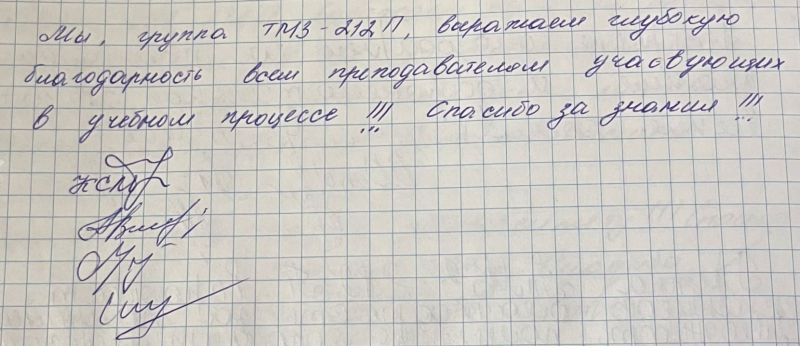 Мы, группа ТМЗ-212П, выражаем глубокую
благодарность всем преподавателям учасвующих
в учебном процессе !!! Спасибо за знания !!!